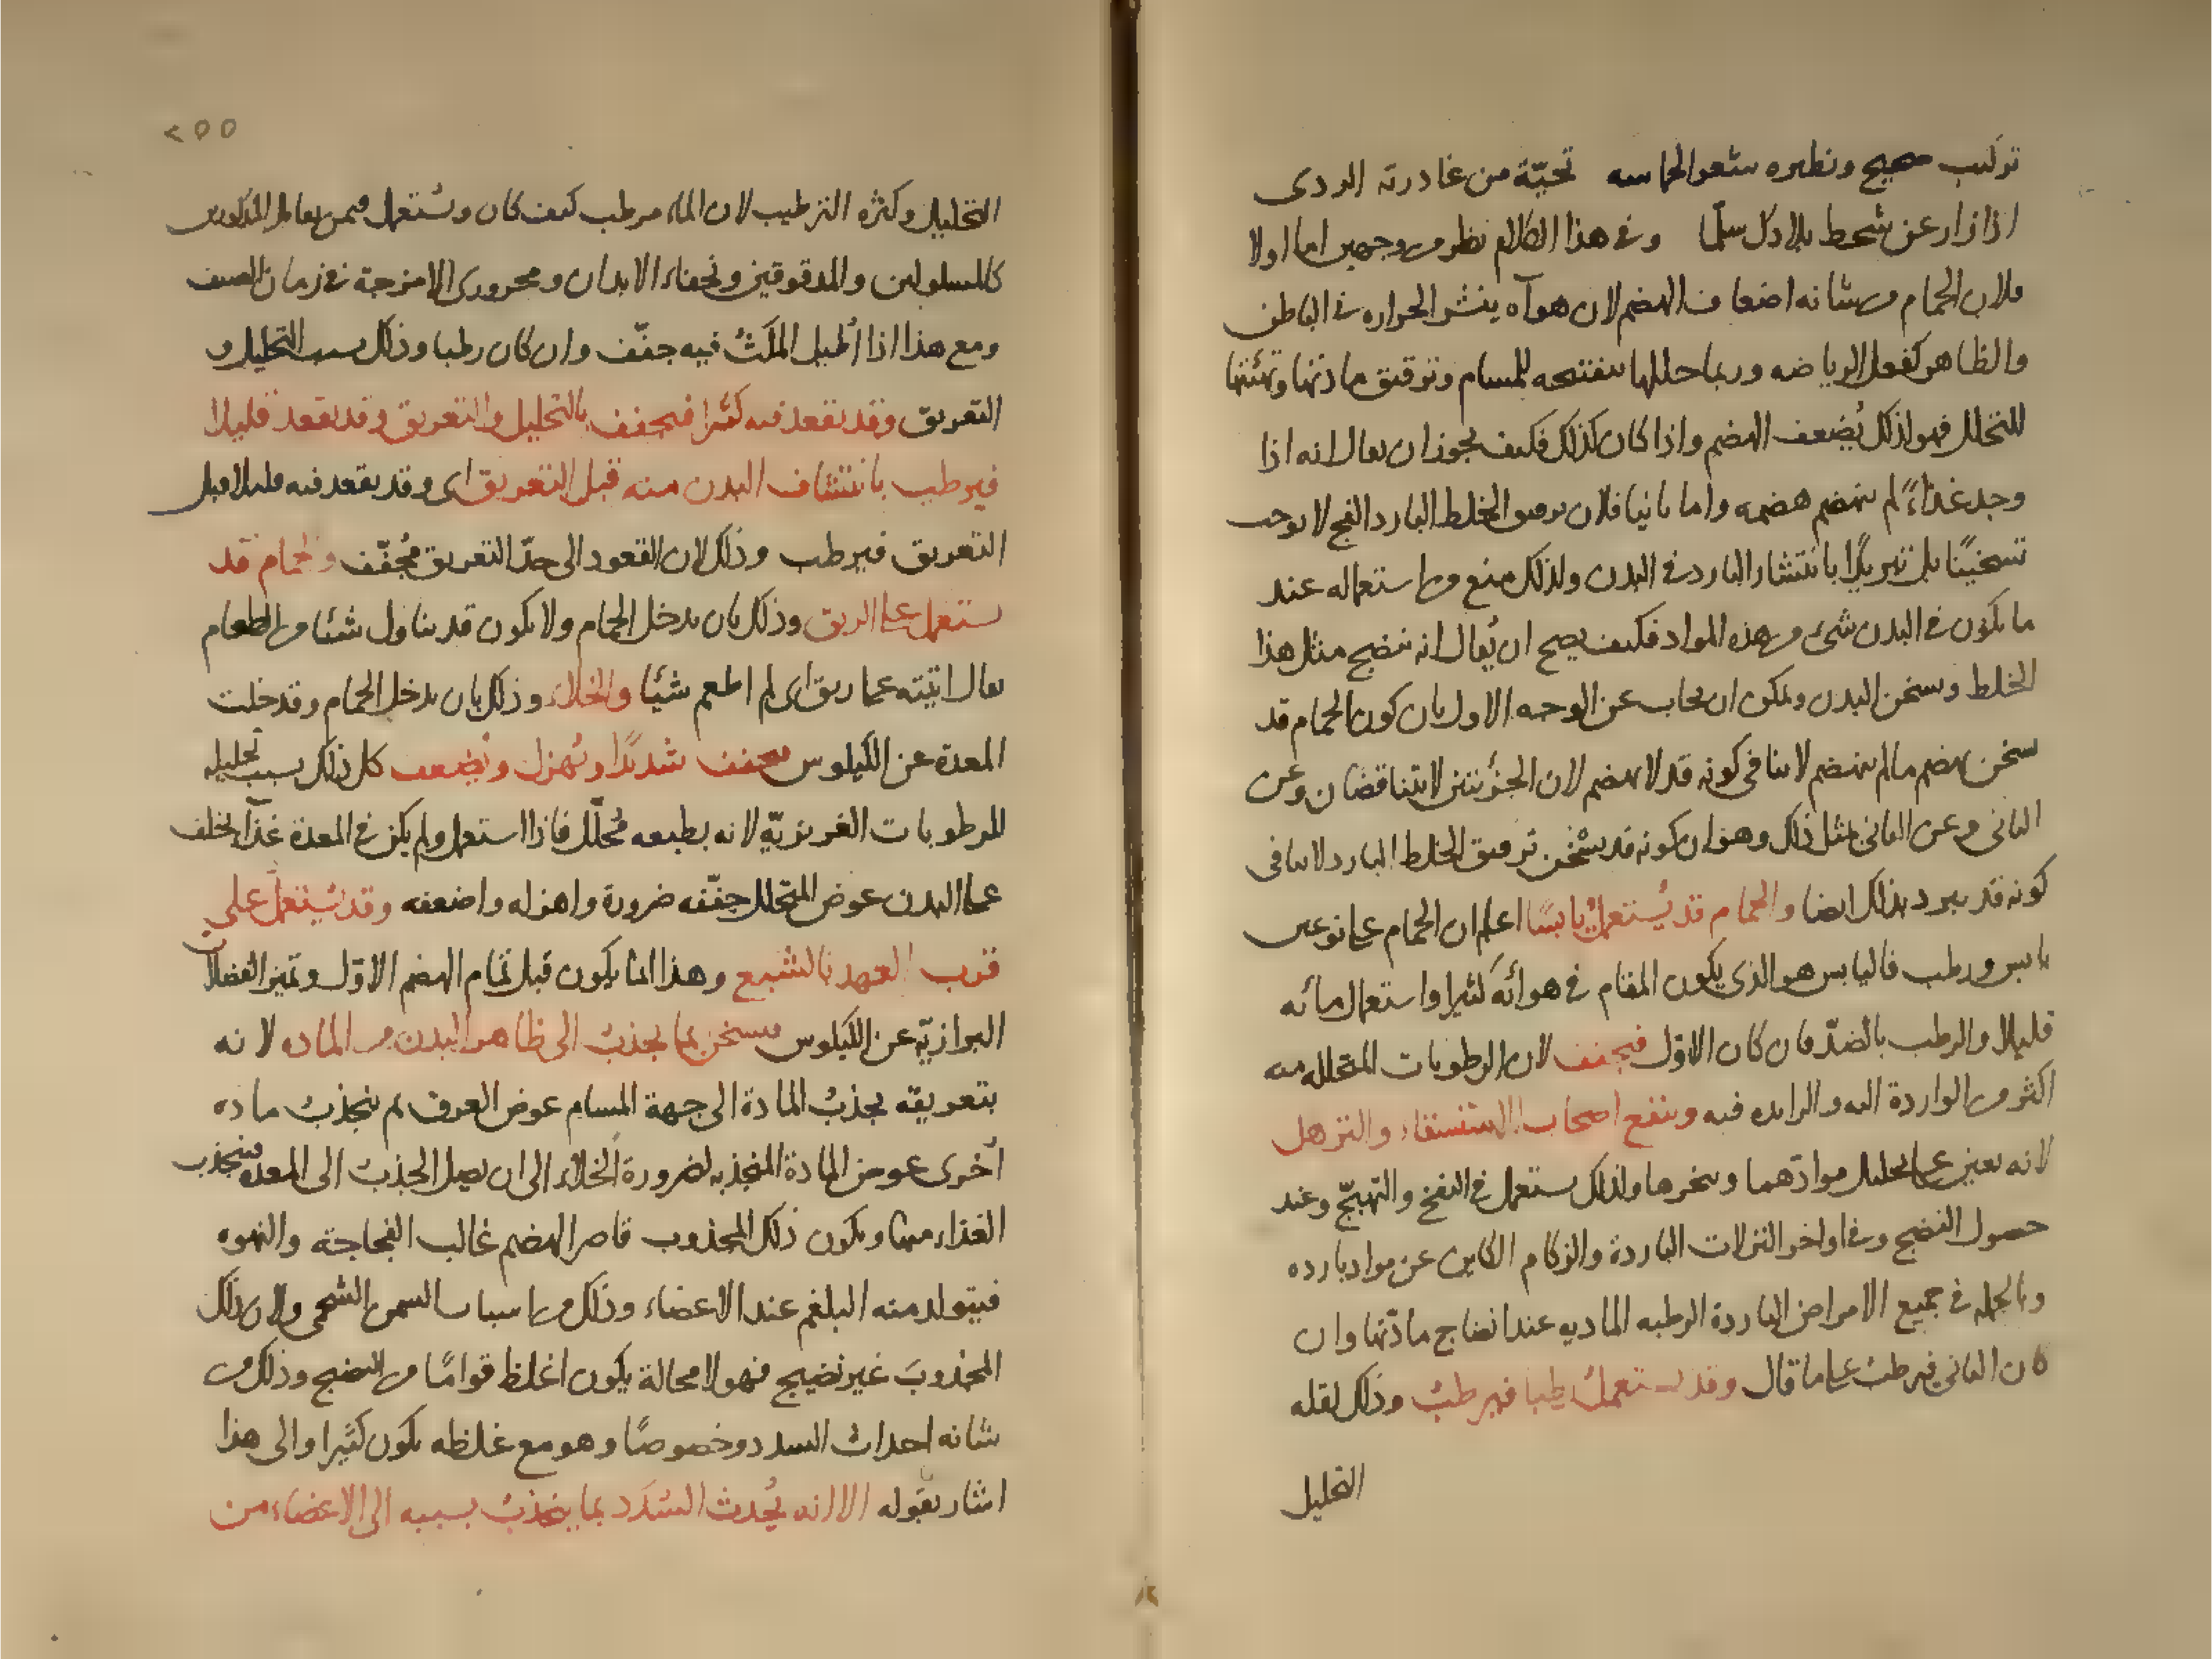 تركيب صحيح ونظيره شعر الحماسه تحيّة من غادرته الردى
اذا زار عن شحط بلادك سلما وفى هذا الكلام نظر من وجهين اما اولا
فلان الحمام من شانه اضعاف الهضم لان هوآه ينشر الحراره فى الباطن
والظاهر كفعل الرياضه وربما حللها بتفتيحه للمسام وترقيق مادتها وتهيئتها
للتحلل فهو لذلك يُضعف الهضم واذا كان كذلك فكيف يجوز ان يقال انه اذا
وجد غذاءً لم ينهضم هضمه واما ثانيا فلان ترقيق الخلط البارد الفج لا يوجب
تسخينًا بل تبريدًا بانتشار البارد فى البدن ولذلك يمنع من استعماله عند
ما يكون فى البدن شئ من هذه المواد فكيف يصح ان يُقال انه ينضج مثل هذا
الخلط ويسخن البدن ويمكن ان يجاب عن الوجه الاول بان كون الحمام قد
يسخن بهضم ما لم ينهضم لا ينافى كونه قد لا يهضم لان الجزئيتين لا يتناقضان وعن
الثانى وعن الثانى بمثل ذلك وهو ان كونه قد يسخن بترقيق الخلط البارد لا ينافى
كونه قد يبرد بذلك ايضا والحمام قد يُستعمل يابسًا اعلم ان الحمام على نوعين
يابس ورطب فاليابس هو الذى يكون المقام فى هوائه كثيرا واستعمال مائه
قليلا والرطب بالضدّ فان كان الاوّل فيجفف لان الرطوبات المتحلله منه
اكثر من الواردة اليه والزايده فيه وينفع اصحاب الاستسقاء والترهل
لانه يعين على تحليل موادّهما وتبخرها ولذلك يستعمل فى النفخ والتهبّج وعند
حصول النضج وفى اواخر النزلات الباردة والزكام الكاين عن مواد بارده
وبالجمله فى جميع الامراض الباردة الرطبه الماديه عند انضاج مادّتها وان
كان الثانى فيرطب على ما قال وقد يستعمل رطبا فيرطبُ وذلك لقله
التحليل
٢٥٥
التحليل وكثره الترطيب لان الماء مرطب كيف كان ويُستعمل فيمن يقابل المذكورين
كالمسلولين والمدقوقين ونحفاء الابدان ومحرورى الامزجة فى زمان الصيف
ومع هذا اذا اُطيل المكثُ فيه جفّف وان كان رطبا وذلك بسبب التحليل و
التعريق وقد يقعد فيه كثيرا فيجفف بالتحليل والتعريق وقد يقعد قليلا
فيرطب بانتشاف البدن منه قبل التعريق اى وقد يقعد فيه قليلا قبل
التعريق فيرطب وذلك لان القعود الى حدّ التعريق مُجفّف والحمام قد
يستعمل على الريق وذلك بان يدخل الحمام ولا يكون قد يناول شيئا من الطعام
يقال اتيته على ريق اى لم اطعم شيئا والخلاء وذلك بان يدخل الحمام وقد خلت
المعدة عن الكيلوس فيجفف شديدًا ويُهزل ويُضعف كل ذلك بسبب تحليله
للرطوبات الغريزيّه لانه بطبعه مُحلّل فاذا استعمل ولم يكن فى المعدة غذآء يخلف
على البدن عوض المتحلل جفّفه ضرورة واهزله واضعفه وقد يُستعمل على
قرب العهد بالشبع وهذا انما يكون قبل تمام الهضم الاوّل وتميز الفضلات
البرازيّة عن الكيلوس فيسخن بما يجذبُ الى ظاهر البدن من الماده لانه
بتعريقه يجذبُ المادة الى جهة المسام عوض العرق ثم ينجذبُ ماده
اُخرى عوض المادة المنجذبه لضرورة الخلاء الى ان يصل الجذبُ الى المعدة فينجذب
الغذاء منها ويكون ذلك المجذوب قاصر الهضم غالب الفجاجة والنهوه
فيتولد منه البلغم عند الاعضاء وذلك من اسباب السمن الشحمى ولان ذلك
المجذوبَ غير نضيج فهو لا محالة يكون اغلظ قوامًا من النضيج وذلك من
شانه احداث السدد وخصوصًا وهو مع غلظه يكون كثيرا والى هذا
اشار بقوله الا انه يُحدث السُدَد بما ينجذبُ بسببه الى الاعضاء من